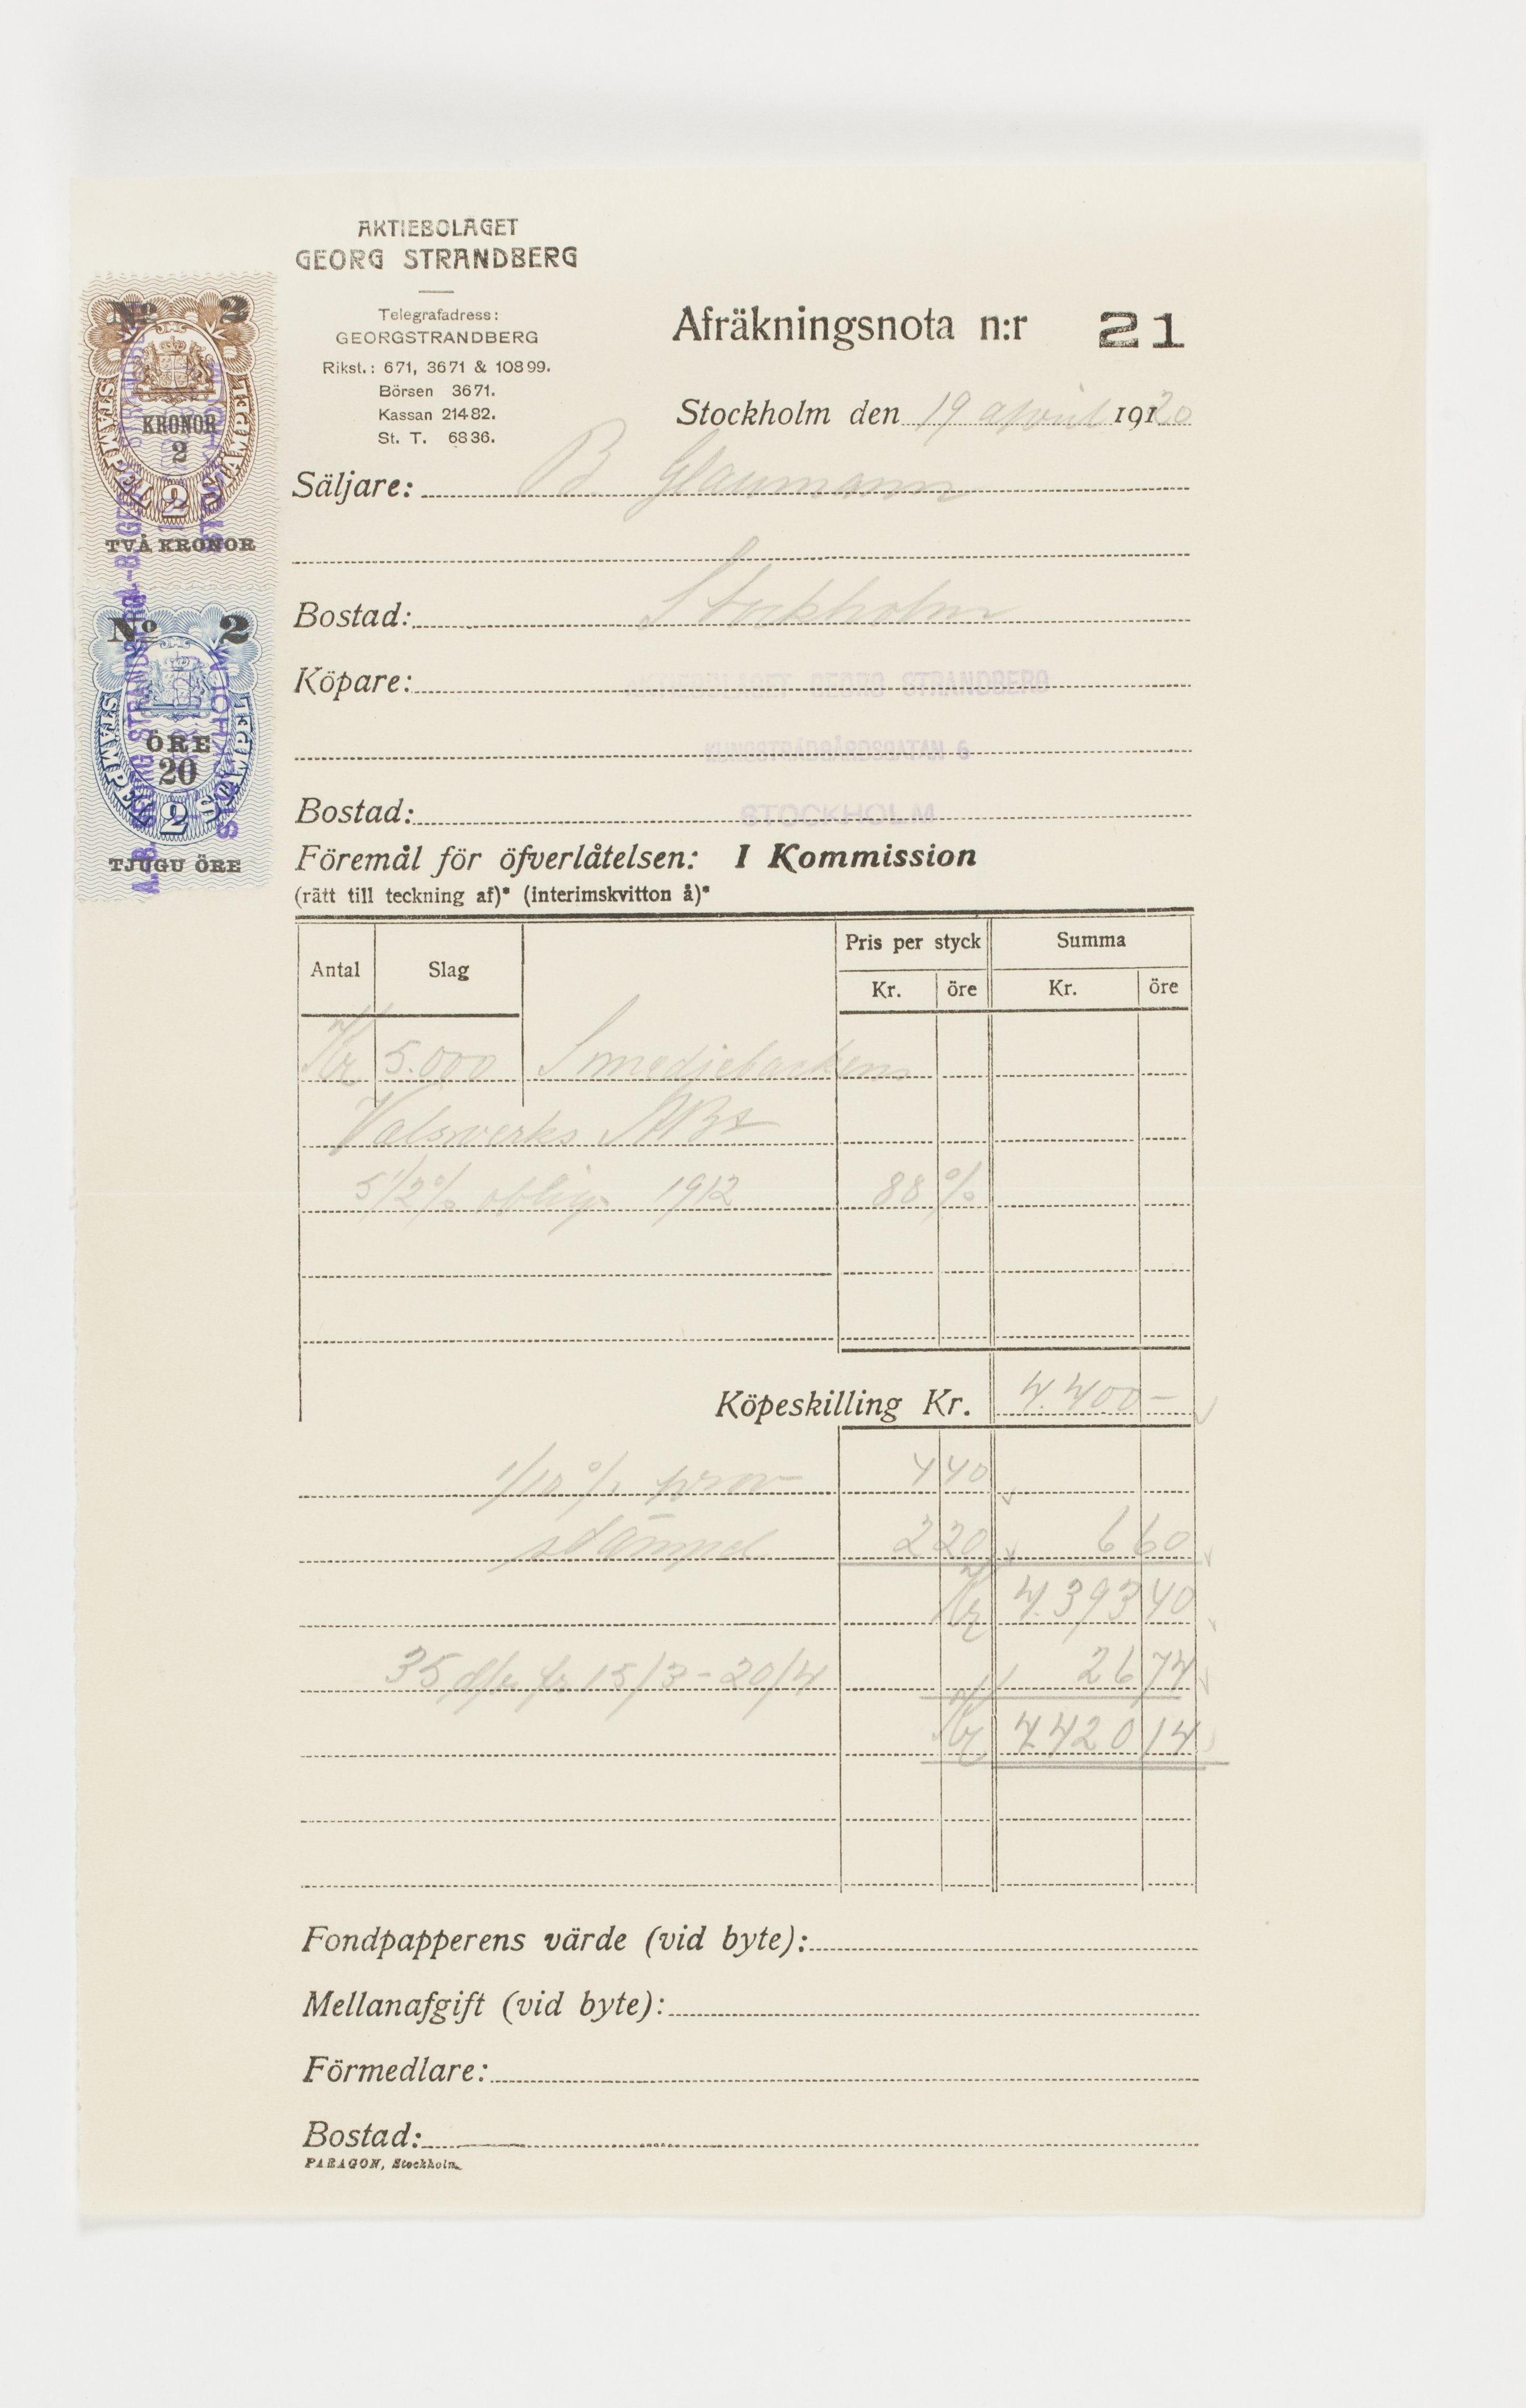 AKTIEBOLAGET
GEORG STRANDBERG
Telegrafadress:
GEORGSTRANDBERG
Rikst.: 671, 3671 & 10899.
Börsen 3671.
Kassan 21482.
St. T. 6836.
Afräkningsnota n:r 21
Stockholm den 19 april 1920
Säljare: B. Glaumann
Bostad: Stockholm
Köpare: AKTIEBOLAGET GEORG STRANDBERG
KUNGSTRÄDGÅRDSGATAN 6
Bostad: STOCKHOLM
Föremål för öfverlåtelsen: I Kommission
(rätt till teckning af)* (interimskvitton å)*
Antal Slag Pris per styck Summa
Kr. öre Kr. öre
Kr 5.000 Smedjebackens
Valsverks AB
5 1/2 % oblig. 1912 88 %
Köpeskilling Kr. 4.400 –
1/10 % prov 4 40
stämpel 2 20 6 60
Kr 4.393 40
35 d/r fr 15/3 – 20/4 26 74
Kr 4.420 14
Fondpapperens värde (vid byte):
Mellanafgift (vid byte):
Förmedlare:
Bostad:
PARAGON, Stockholm.
No 2
STÄMPEL STÄMPEL
KRONOR
2
2
TVÅ KRONOR
No 2
STÄMPEL STÄMPEL
ÖRE
20
2
TJUGU ÖRE
A.-B. GEORG STRANDBERG
STOCKHOLM
A.-B. GEORG STRANDBERG
STOCKHOLM